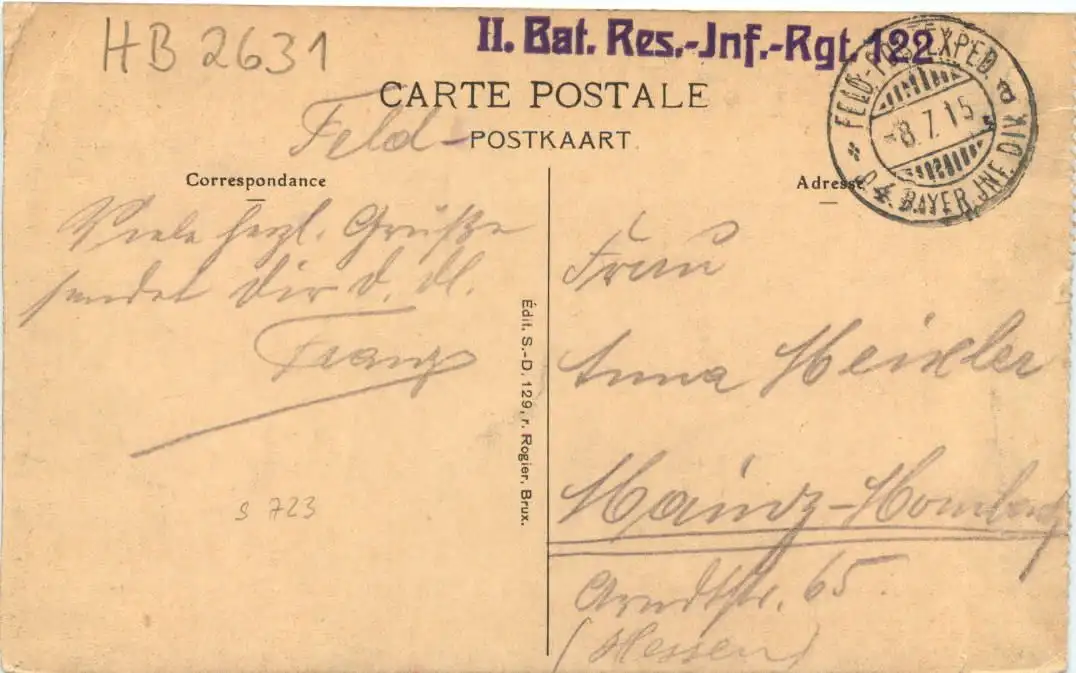 HB 2631
II. Bat. Res.-Inf.-Rgt. 122
FELD-POSTEXPED. a
-8.7.15
* 4. BAYER. INF. DIV.
CARTE POSTALE
Feld-POSTKAART
Correspondance
Viele herzl. Grüße
sendet Dir d. Dl.
Franz
S 723
Édit. S.-D. 129, r. Rogier, Brux.
Adresse
Frau
Anna Meixler
Mainz-Mombach
Arndtstr. 65.
(Hessen)